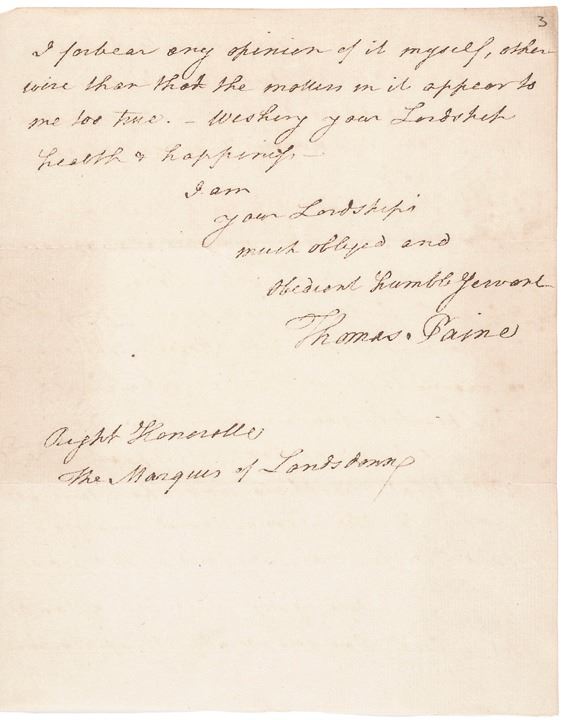 3
I forbear any opinion of it myself, other-
wise than that the matters in it appear to
me too true. – Wishing your Lordship
health & happiness –
I am
your Lordships
much obliged and
Obedient humble Servant
Thomas Paine
Right Honorable
The Marquis of Landsdown